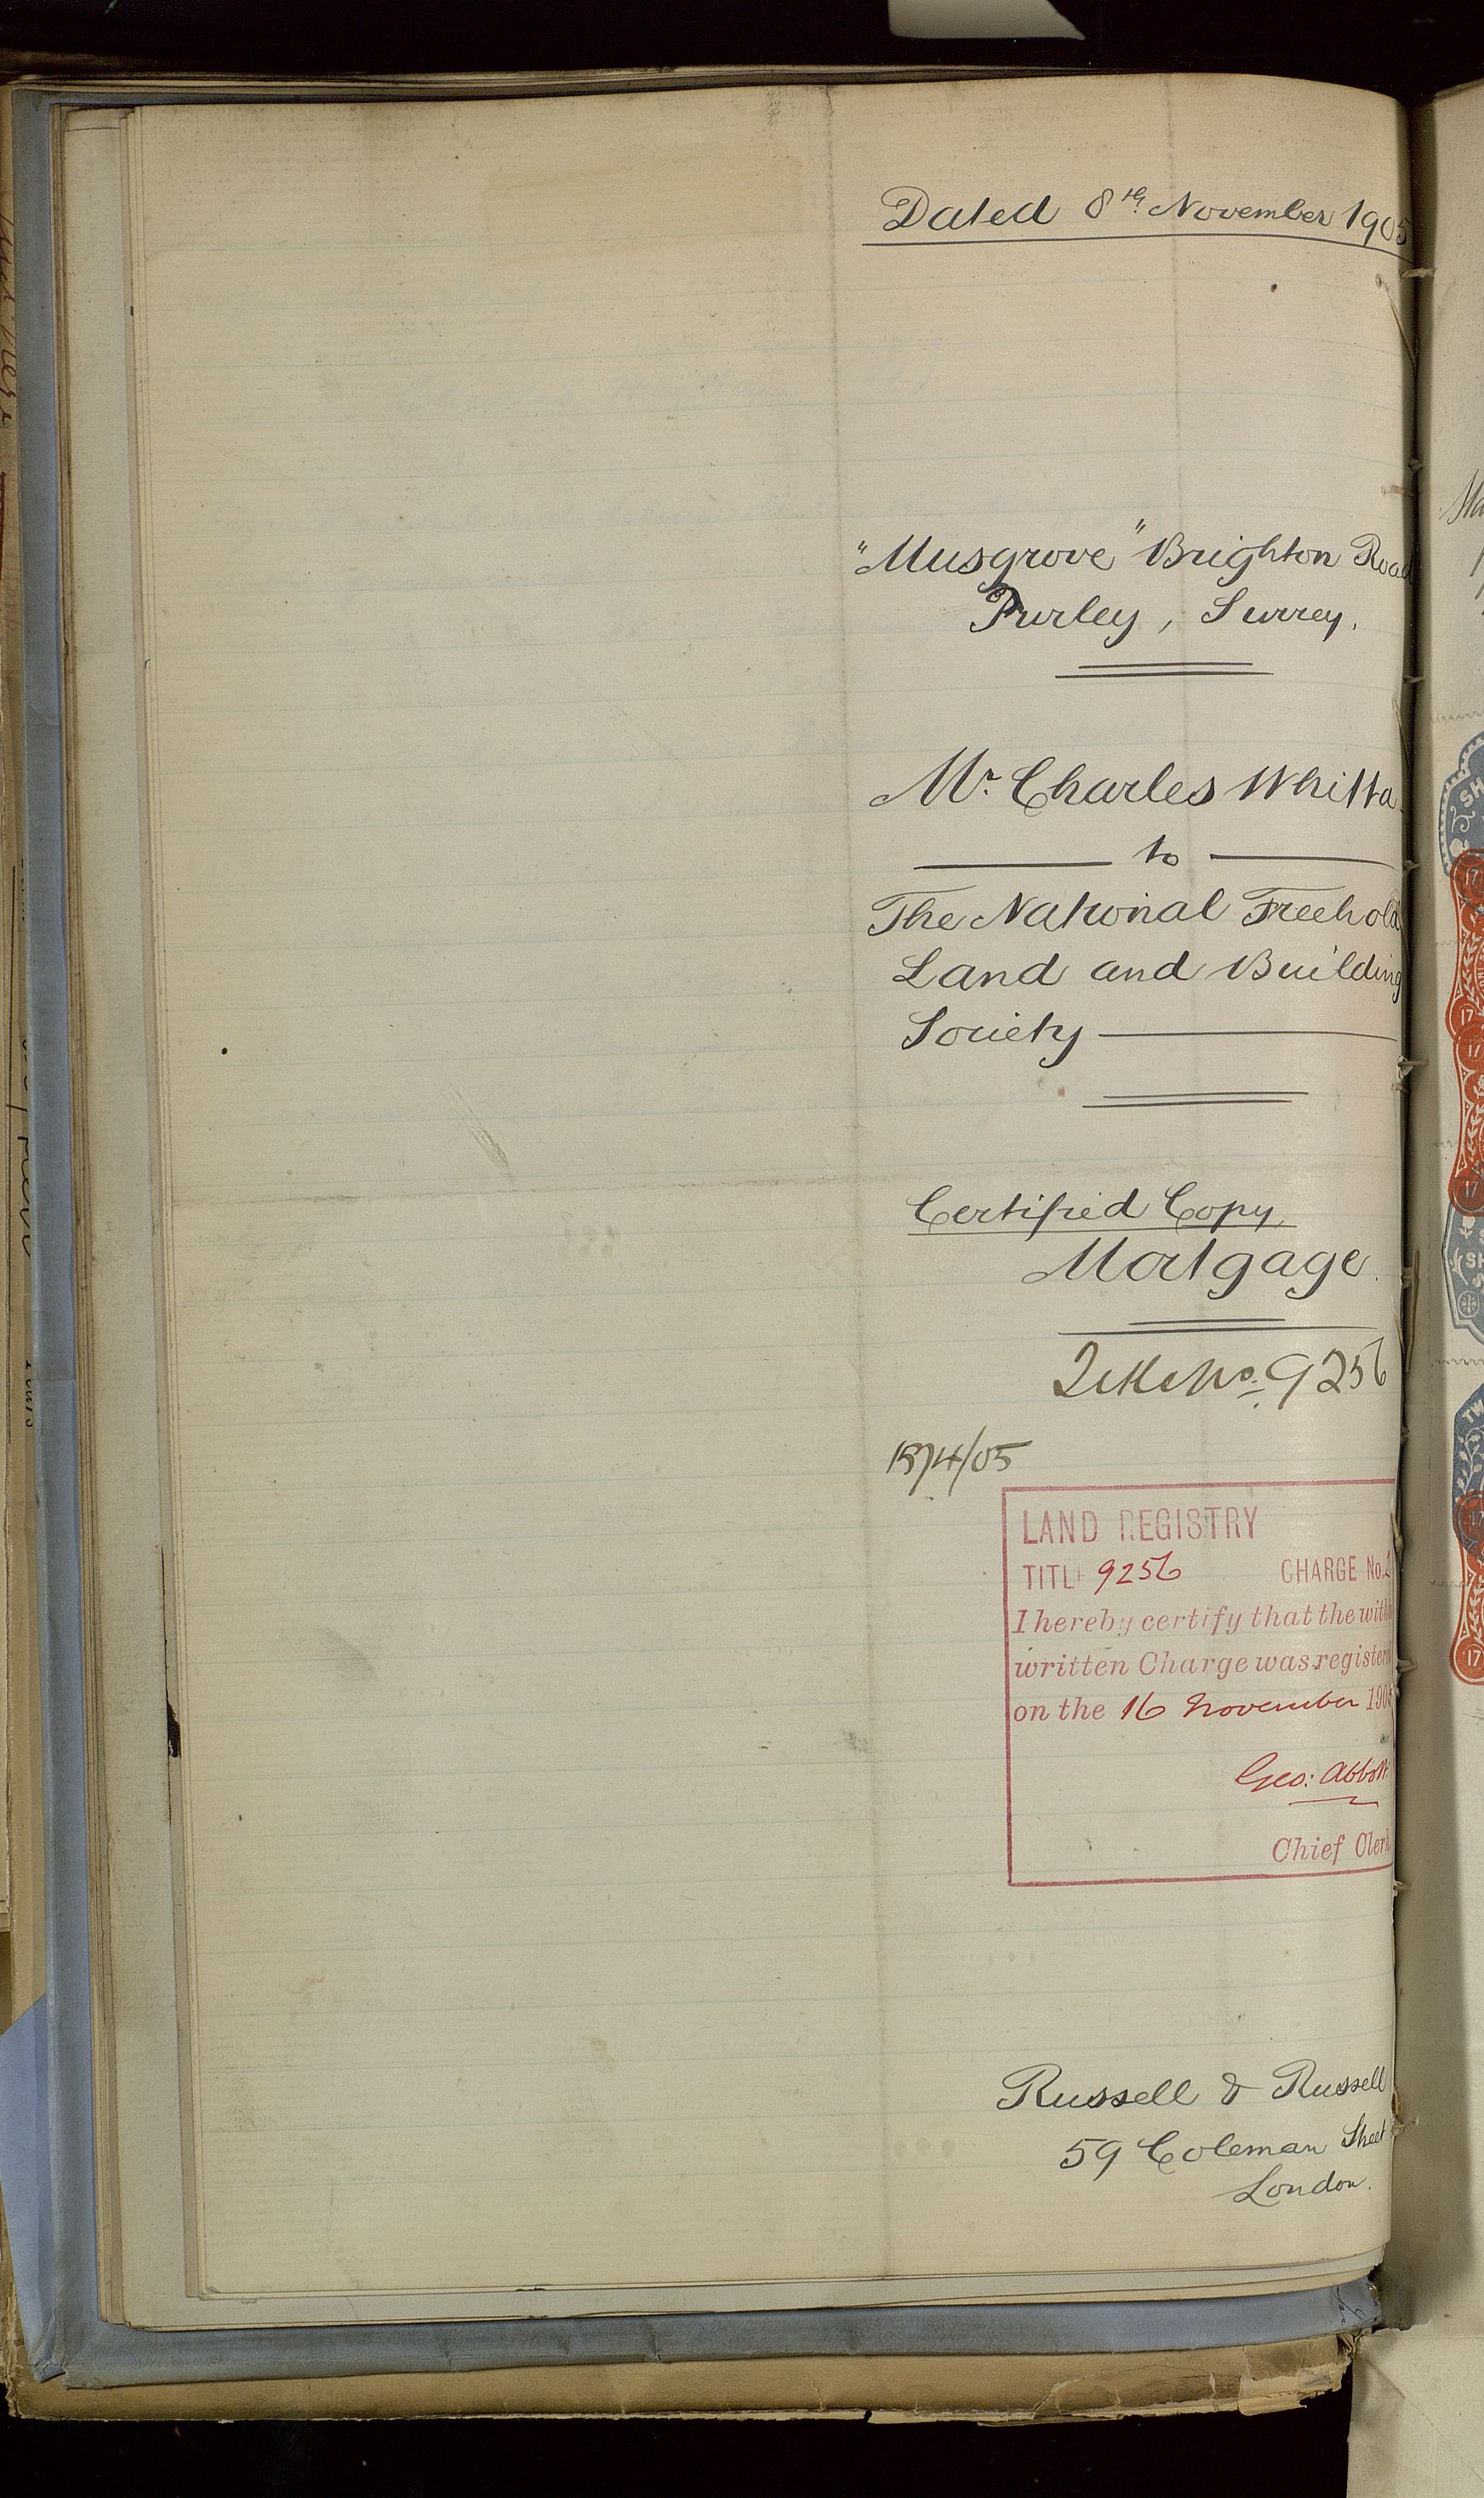 Dated 8th November 1905
"Musgrove" Brighton Road
Purley, Surrey.
Mr. Charles Whitta
to
The National Freehold
Land and Building
Society
Certified Copy
Mortgage.
Title No. 9256
LAND REGISTRY
TITLE 9256 CHARGE No. 2
I hereby certify that the within
written Charge was registered
on the 16 November 1905
Geo: Abbott
Chief Clerk
Russell & Russell
59 Coleman Street
London.